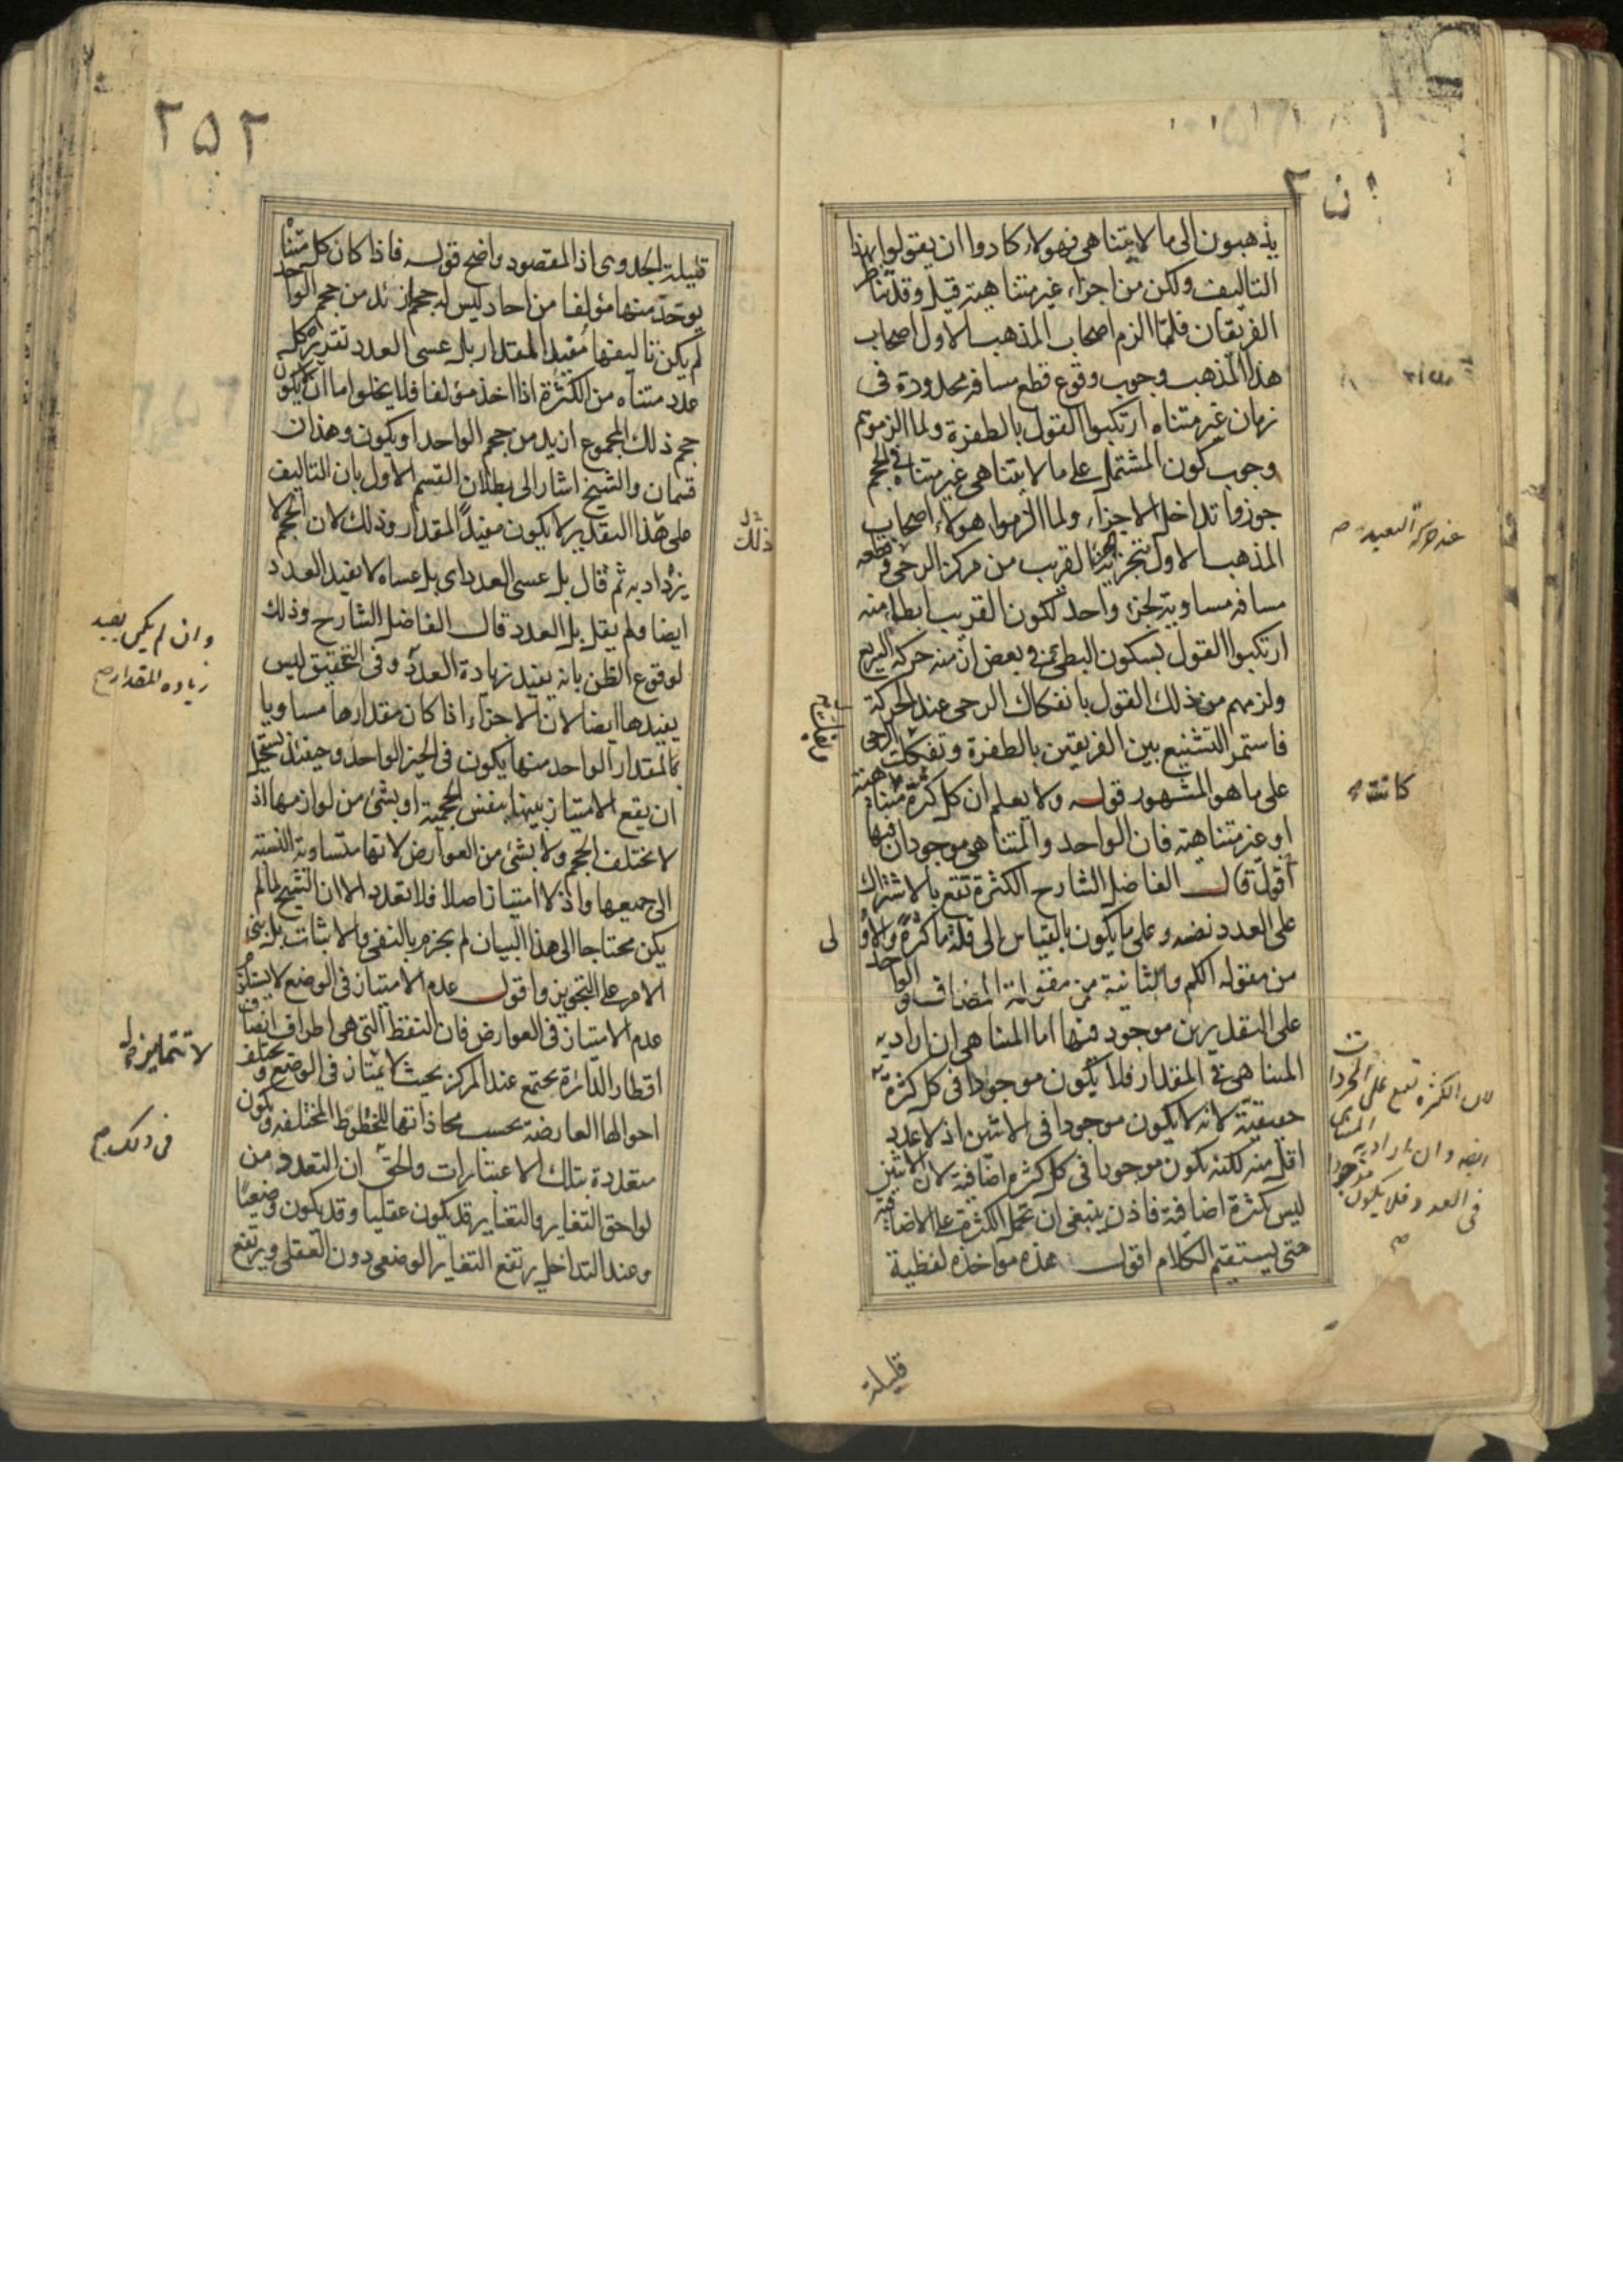 يذهبون الى ما لا يتناهى فهولاء كادوا ان يقولوا بهذا
التاليف ولكن من اجزاء غير متناهية قيل وقد تناظر
الفريقان فلما الزم اصحاب المذهب الاول اصحاب
هذا المذهب وجوب وقوع قطع مسافة محدودة فى
زمان غير متناه ارتكبوا القول بالطفرة ولما الزموهم
وجوب كون المشتمل على ما لا يتناهى غير متناه فى الحجم
جوزوا تداخل الاجزاء ولما الزموا هولاء اصحاب
المذهب الاول بتجزية الجزء القريب من مركز الرحى وقطعه
مسافة مساوية لجزء واحد لكون القريب ابطا منه
ارتكبوا القول بسكون البطى فى بعض ازمنة حركة السريع
ولزمهم من ذلك القول بانفكاك الرحى عند الحركة
فاستمر التشنيع بين الفريقين بالطفرة وتفكك الرحى
على ما هو المشهور قوله ولا يعلم ان كل كثرة متناهية
او غير متناهية فان الواحد والمتناهى موجودان فيها
اقول قال الفاضل الشارح الكثرة تقع بالاشتراك
على العدد نفسه وعلى ما يكون بالقياس الى قلة ما كثرة والاولى
من مقولة الكم والثانية من مقولة المضاف والواحد
على التقديرين موجود فيها اما المتناهى ان اراد به
المتناهى فى المقدار فلا يكون موجودا فى كل كثرة
حقيقية لانه لا يكون موجودا فى الاثنين اذ لا عدد
اقل منه لكنه يكون موجودا فى كل كثرة اضافية لان الاثنين
ليس بكثرة اضافية فاذن ينبغى ان تحمل الكثرة على الاضافية
حتى يستقيم الكلام اقول هذه مواخذة لفظية
قليلة
عند حركة البعيد
كانت
لان الكثرة تقع على المجردات
ايضا وان اراد به المتناهى
فى العدد فلا يكون موجودا
٢٥٢
قليلة الجدوى اذ المقصود واضح قوله فاذا كان كل متناه
يوجد منها مؤلفا من احاد ليس له حجم ازيد من حجم الواحد
لم يكن تاليفها مفيد المقدار بل عسى العدد تقديره كل
عدد متناه من الكثرة اذا اخذ مؤلفا فلا يخلوا اما ان لا يكون
حجم ذلك المجموع ازيد من حجم الواحد او يكون وهذان
قسمان والشيخ اشار الى بطلان القسم الاول بان التاليف
على هذا التقدير لا يكون مفيدا للمقدار وذلك لان الحجم لا
يزداد به ثم قال بل عسى العدد اى بل عساه لا يفيد العدد
ايضا ولم يقل بل العدد قال الفاضل الشارح وذلك
لوقوع الظن بانه يفيد زيادة العدد وفى التحقيق ليس
يفيدها ايضا لان الاجزاء اذا كان مقدارها مساويا
لمقدار الواحد منها يكون فى الحيز الواحد وحينئذ يستحيل
ان يقع الامتياز بينها بنفس الحجمية او بشئ من لوازمها اذ
لا يختلف الحجم ولا بشئ من العوارض لانها متساوية النسبة
الى جميعها واذ لا امتياز اصلا فلا تعدد الا ان الشيخ لما لم
يكن محتاجا الى هذا البيان لم يجزم بالنفى والاثبات بل بنى
الامر على التجويز واقول عدم الامتياز فى الوضع لا يستلزم
عدم الامتياز فى العوارض فان النقط التى هى اطراف انصاف
اقطار الدائرة يجتمع عند المركز بحيث لا يمتاز فى الوضع ويختلف
احوالها العارضة بحسب محاذاتها للخطوط المختلفة ويكون
متعددة بتلك الاعتبارات والحق ان التعدد من
لواحق التغاير والتغاير قد يكون عقليا وقد يكون وضعيا
وعند التداخل يرتفع التغاير الوضعى دون العقلى ويرتفع
ذلك
وان لم يكن يفيد
زيادة المقدار
لا تتمايز
فى ذلك